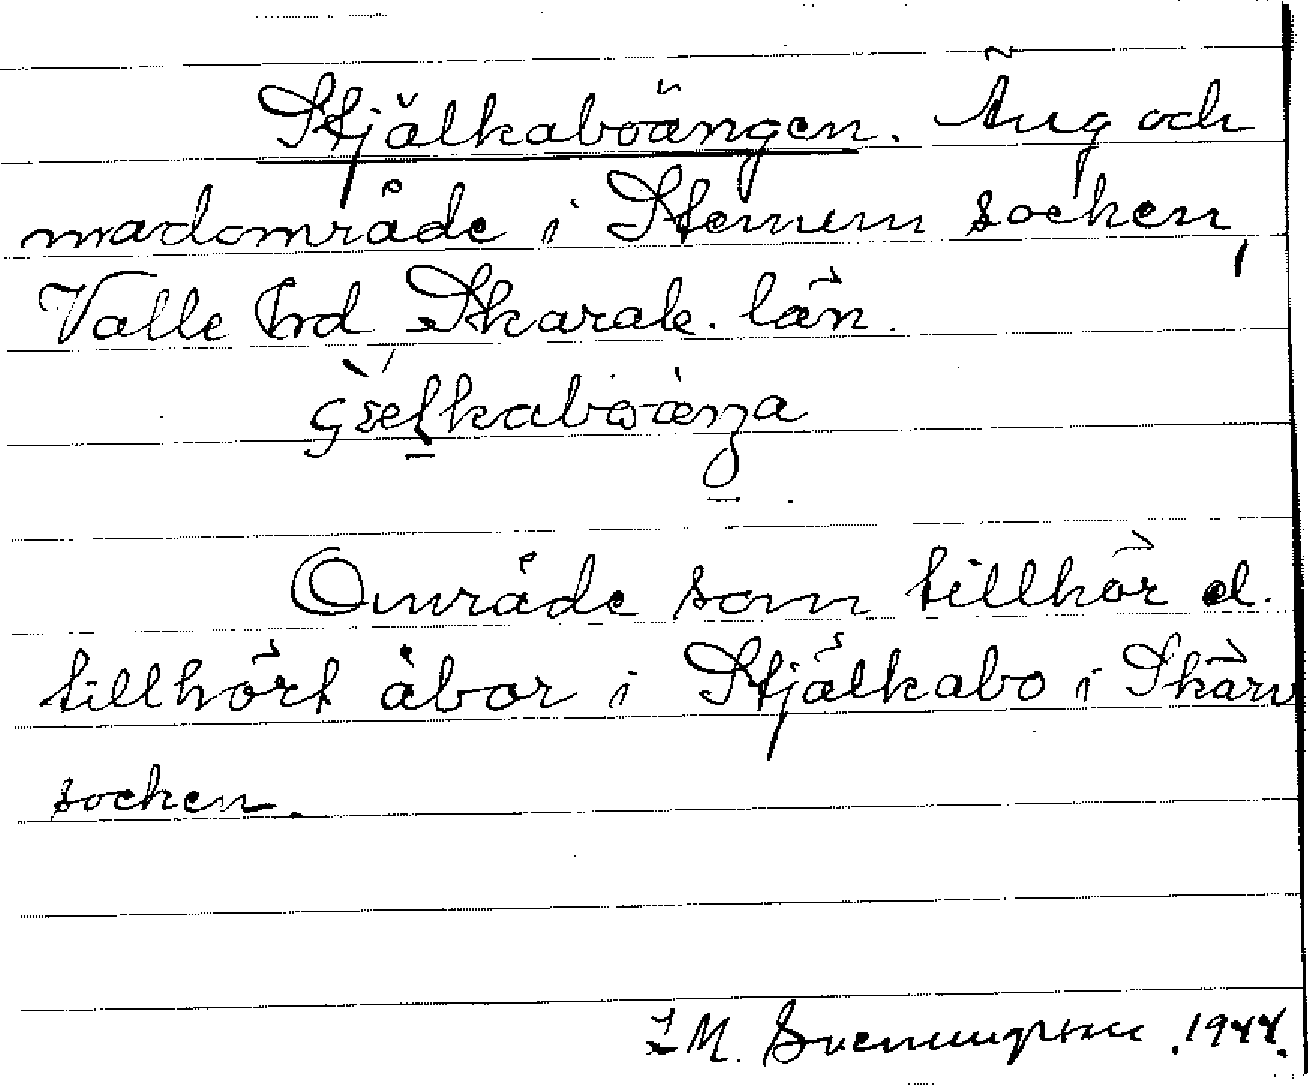 Stjälkaboängen. Äng och
madområde i Stenum socken,
Valle hrd Skarab. län.
Område som tillhör el.
tillhört åbor i Stjälkabo i Skärv
socken.
I M. Svenungsson. 1944.